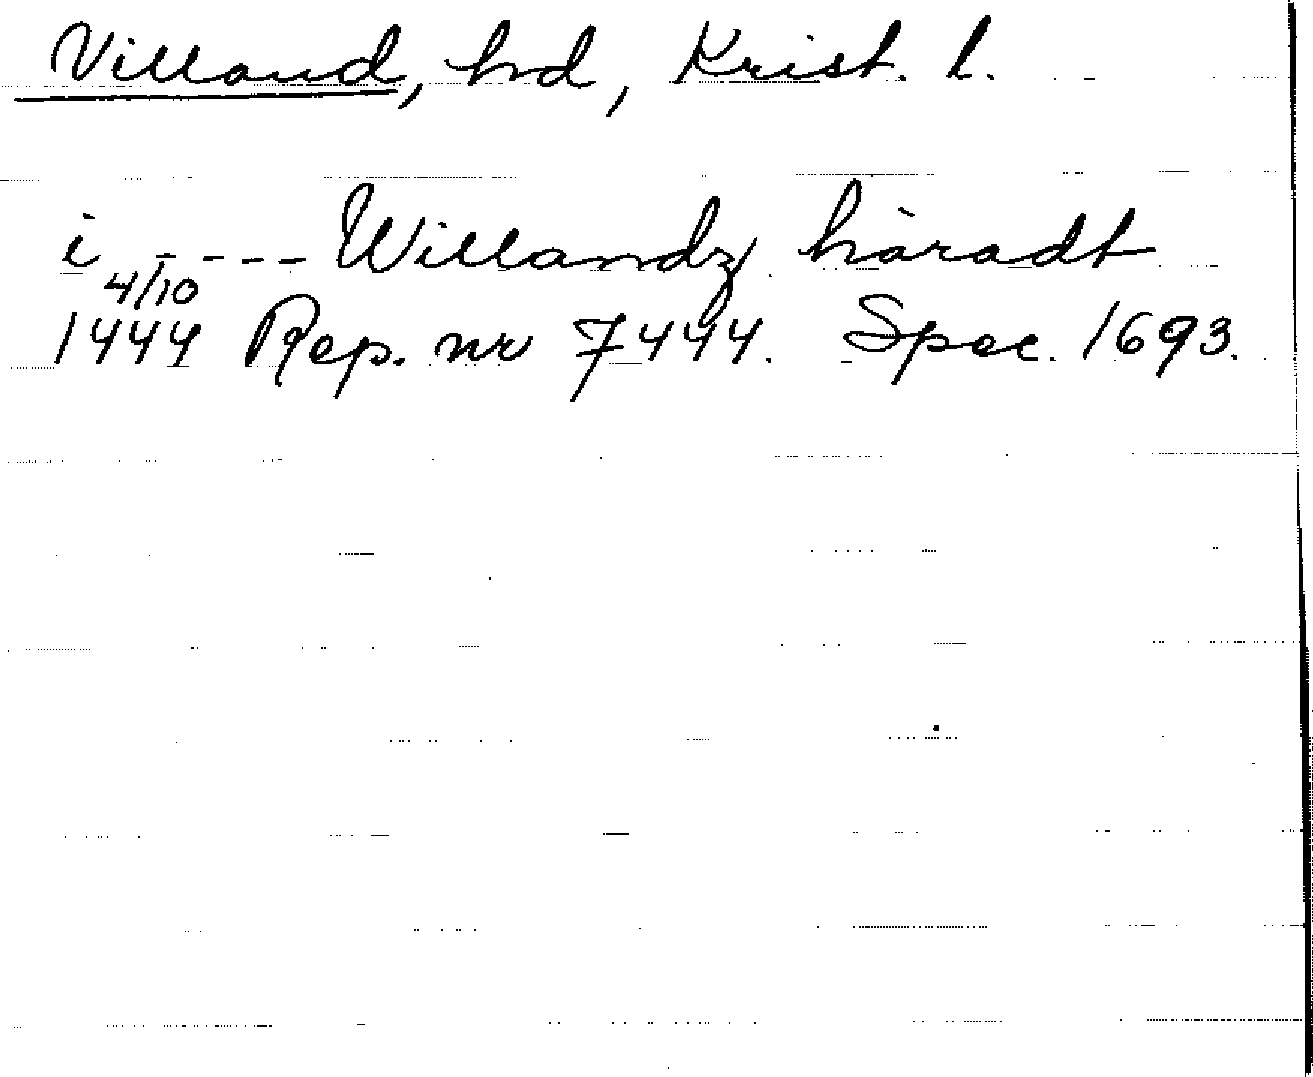 Villand, hd, Krist. l.
i ---- Willandz háradt
4/10
1444 Rep. nr 7444. Spec. 1693.